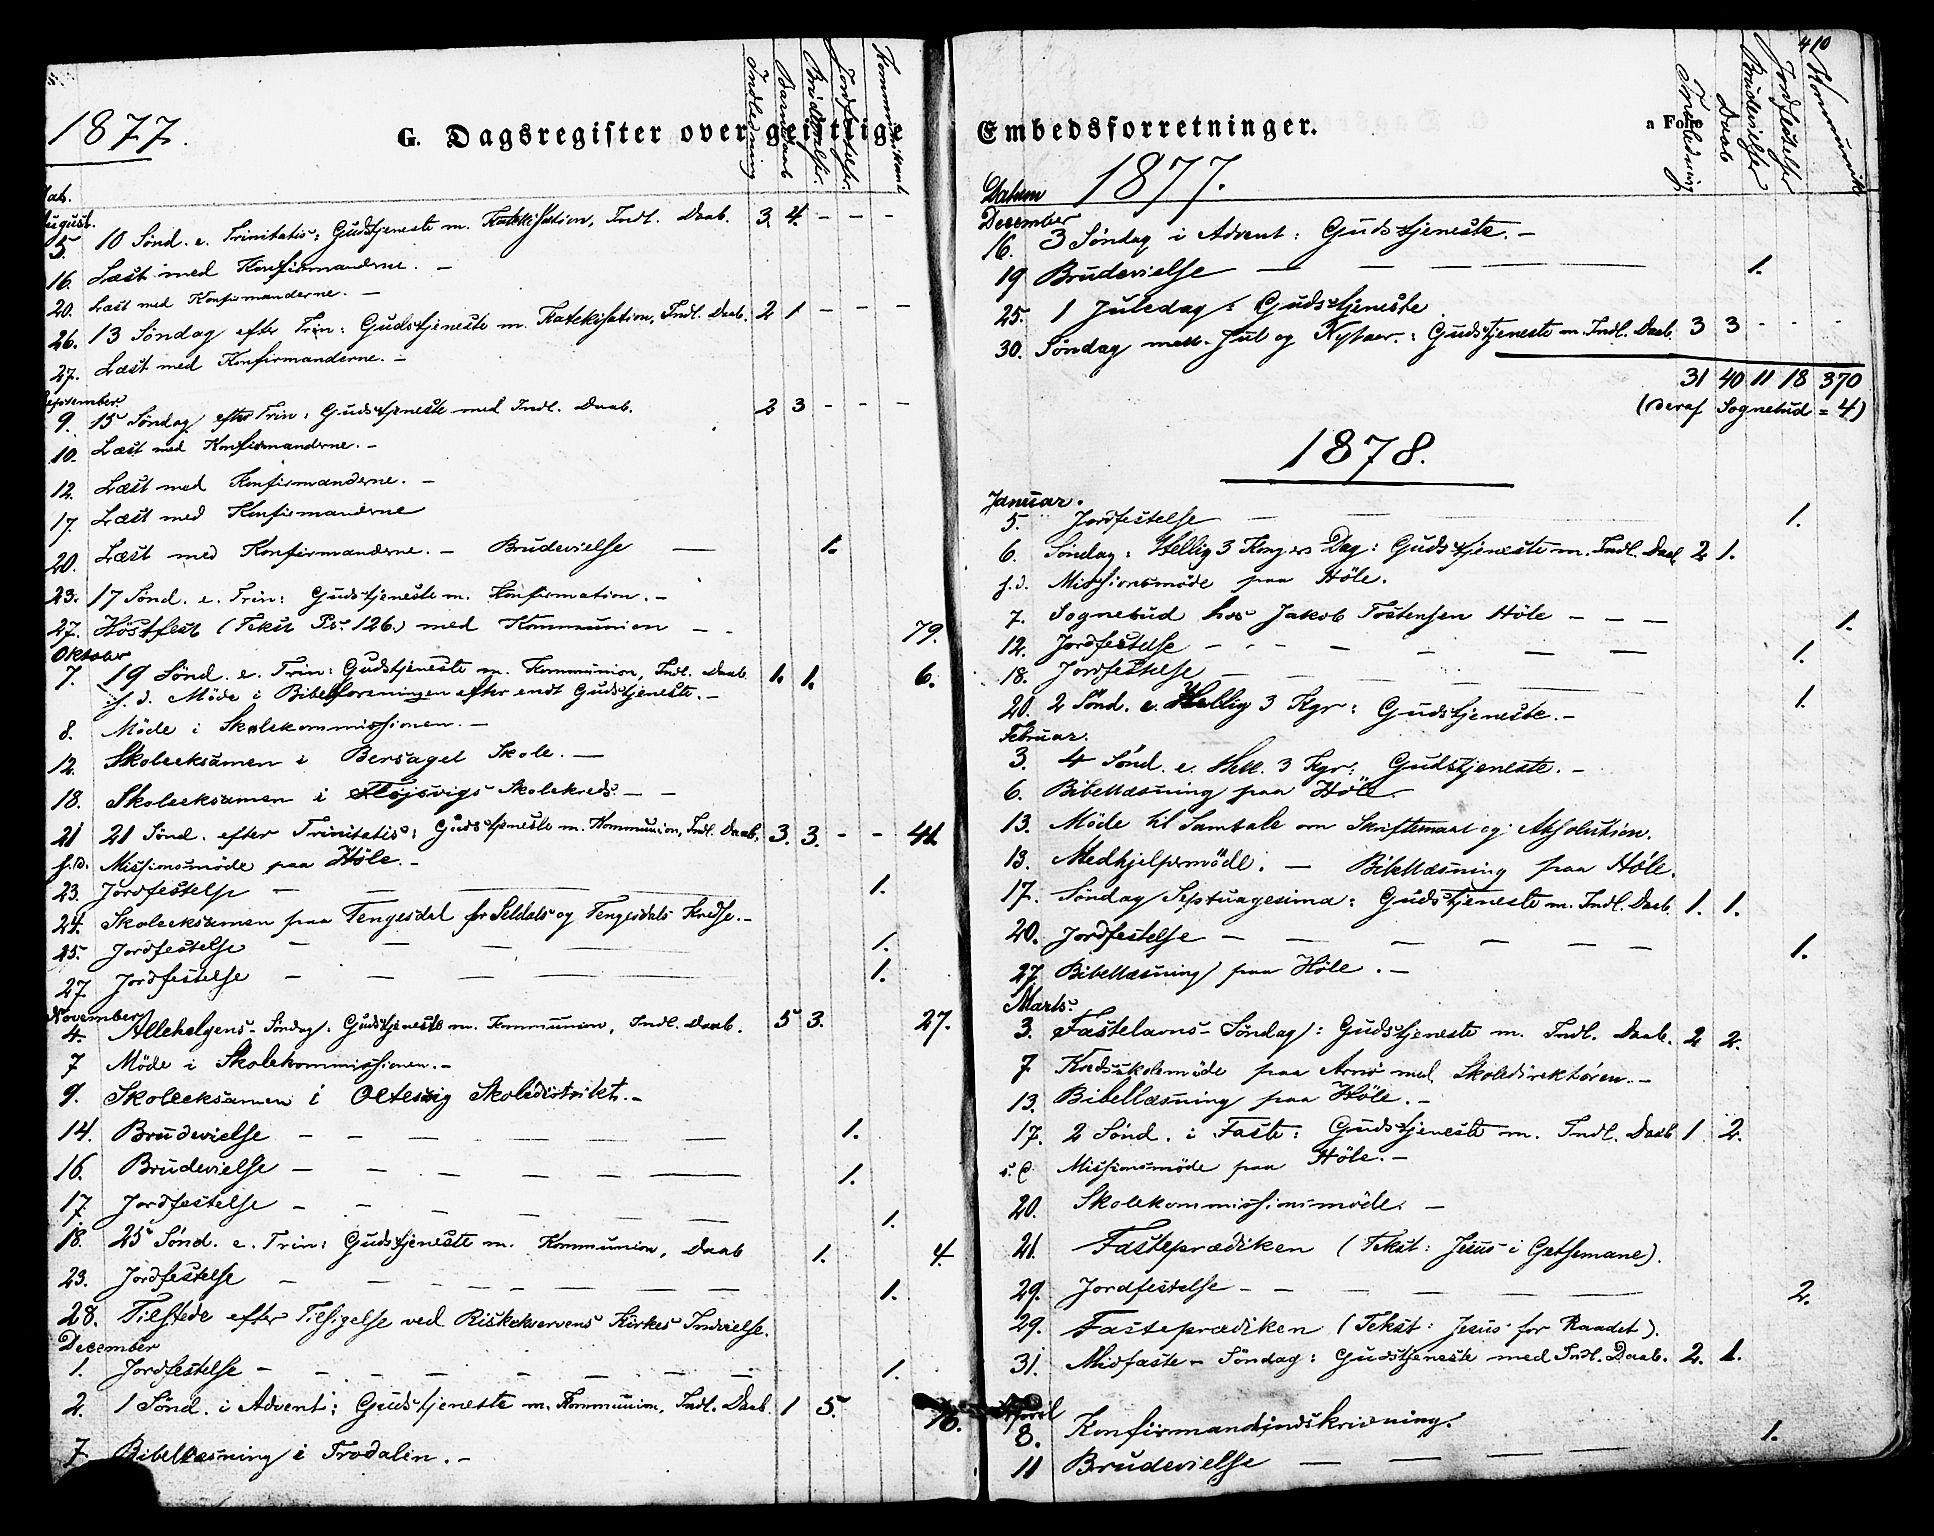 1877.
G. Dagsregister over geistlige
Indledning Barnedaab Brudevielser. Jordfæstelser Kommunikant
Dat.
August.
5. 10 Sønd. e. Trinitatis: Gudstjeneste m. Katekisation, Indl. Daab. 3. 4. - - -
16. Læst med Konfirmanderne. -
20. Læst med Konfirmanderne. -
26. 13 Søndag efter Trin: Gudstjeneste m. Katekisation, Indl. Daab. 2 1 - - -
27. Læst med Konfirmanderne. -
September
9. 15 Søndag efter Trin: Gudstjeneste med Indl. Daab. 2 3 - - -
10. Læst med Konfirmanderne. -
12. Læst med Konfirmanderne. -
17. Læst med Konfirmanderne
20. Læst med Konfirmanderne. - Brudevielse - 1.
23. 17 Sønd. e. Trin: Gudstjeneste m. Konfirmation. -
27. Høstfest (Tekst Ps. 126.) med Kommunion - - 79.
Oktober
7. 19 Sønd. e. Trin: Gudstjeneste m. Kommunion, Indl. Daab 1. 1. 6.
s. d. Möde i Bibelforeningen efter endt Gudstjeneste. -
8. Möde i Skolekommissionen. -
12. Skoleeksamen i Bersagel Skole. -
18. Skoleeksamen i Skolekreds - -
21 21 Sønd. efter Trinitatis: Gudstjeneste m. Kommunion, Indl. Daab. 3. 3. - - 41.
s. d. Missionsmöde paa Höle. -
23. Jordfestelse - - - - 1.
24. Skoleeksamen paa Tengesdal for Seldals og Tengesdals Kredse. -
25. Jordfestelse - - - - 1.
27 Jordfestelse - - - - 1.
November
4. Allehelgens-Søndag: Gudstjeneste m. Kommunion, Indl. Daab. 5 3. 27.
7 Möde i Skolekommissionen. -
9. Skoleeksamen i Oltesvig Skoledistrikt. -
14. Brudevielse - - - - - 1.
16. Brudevielse - - - - - 1.
17. Jordfestelse - - - - - 1.
18. 25 Sønd. e. Trin: Gudstjeneste m. Kommunion, Daab 1. 4.
23. Jordfestelse - - - - - 1.
28. Tilstede efter Tilsigelse ved Riskekvervens Kirkes Indvielse.
December
1. Jordfestelse - - - - - 1.
2. 1 Sønd. i Advent: Gudstjeneste m. Kommunion, Indl. Daab. 1 5. 16.
7. Bibellæsning i Trodalen. -
410
Embedsforretninger.
a Folio
Indledning Daab Brudevielser Jordfestelser Kommunik
1877.
Datum
December
16. 3 Søndag i Advent: Gudstjeneste. -
19 Brudevielse - - - - 1.
25. 1 Juledag: Gudstjeneste
30. Søndag mell. Jul og Nytaar.: Gudstjeneste m. Indl. Daab. 3 3 - - -
31 40 11 18 370
(deraf Sognebud = 4)
1878.
Januar.
5. Jordfestelse - - - - 1.
6. Søndag: Hellig 3 Kongers Dag: Gudstjeneste m. Indl. Daab 2 1.
s. d. Missionsmöde paa Höle.
7. Sognebud hos Jakob Tostensen Höle - - - 1.
12. Jordfestelse - - - - - 1.
18. Jordfestelse - - - - -
20. 2 Sønd. e. Hellig 3 Kgr: Gudstjeneste. - 1.
Februar.
3. 4 Sønd. e. Hell. 3 Kgr: Gudstjeneste. -
6. Bibellæsning paa Höle
13. Möde til Samtale om Skriftemaal og Absolution.
13. Medhjelpermöde. - Bibellæsning paa Höle.
17. Søndag Septuagesima: Gudstjeneste m. Indl. Daab 1. 1.
20. Jordfestelse - - - - - 1.
27 Bibellæsning paa Höle. -
Marts.
3. Fastelavns-Søndag: Gudstjeneste m. Indl. Daab. 2 2.
7 Kredsskolemöde paa med Skoledirektören. -
13. Bibellæsning paa Höle. -
17. 2 Sønd. i Faste: Gudstjeneste m. Indl. Daab 1. 2.
s. d. Missionsmöde paa Höle. -
20. Skolekommissionsmöde. -
21. Fasteprædiken (Tekst: Jesus i Getsemane).
29. Jordfestelse - - - - - 2.
29. Fasteprædiken (Tekst: Jesus for Raadet).
31. Midfaste-Søndag: Gudstjeneste med Indl. Daab. 2. 1.
April
8. Konfirmandindskrivning.
11 Brudevielse - - - - 1.